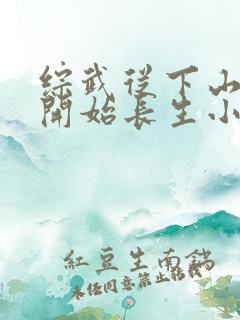 綜武從下山
開始長生小
紅豆生南鍋
未任同意禁止轉載